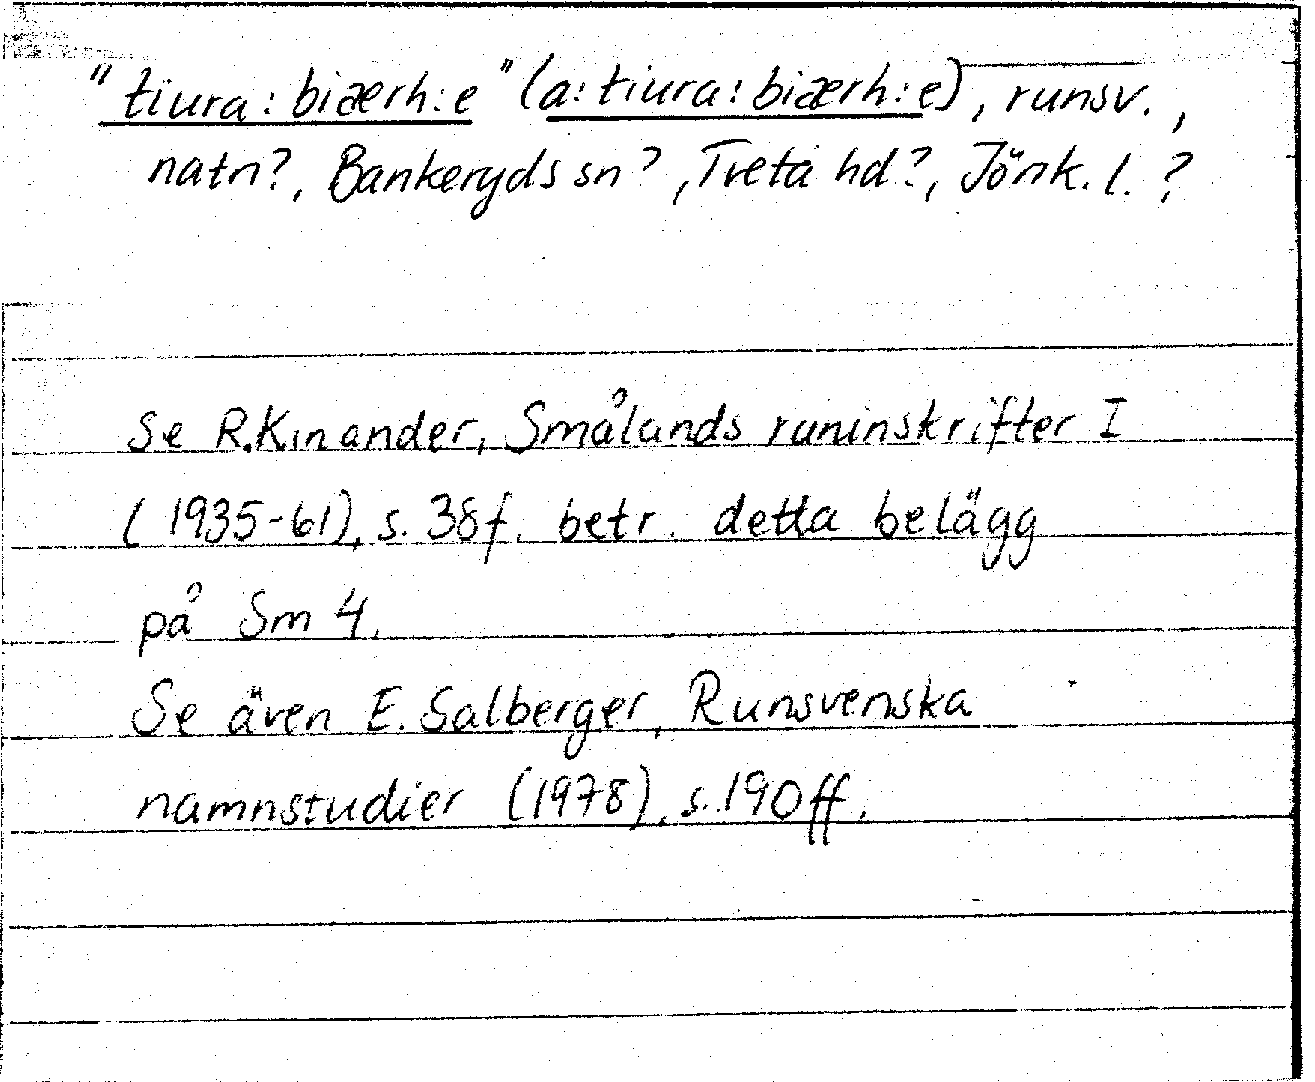 "tiura: biærh:e" (a: tiura: biærh:e), runsv.,
natn?, Bankeryds sn?, Tveta hd?, Jönk. l.?
Se R.Kinander, Smålands runinskrifter I
(1935-61), s. 38f. betr. detta belägg
på Sm 4.
Se även E. Salberger, Runsvenska
namnstudier (1978), s. 190ff.